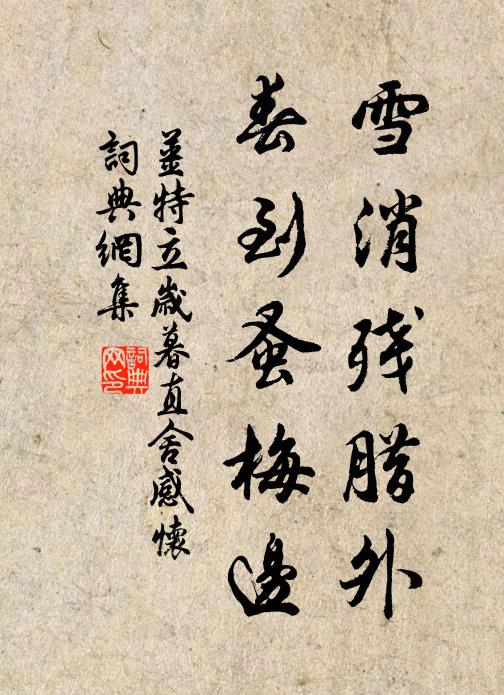 雪消残腊外
春到蚤梅邊
姜特立歲暮直舍感懷
詞典網集
詞典網印